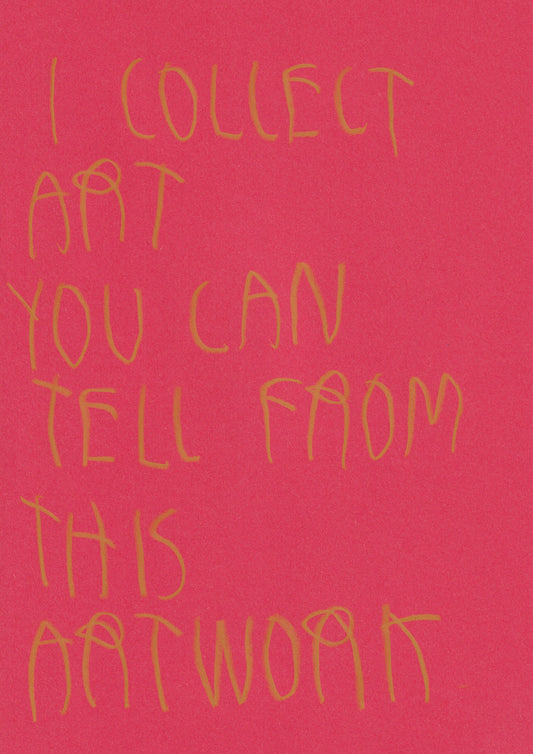 I COLLECT
ART
YOU CAN
TELL FROM
THIS
ARTWORK